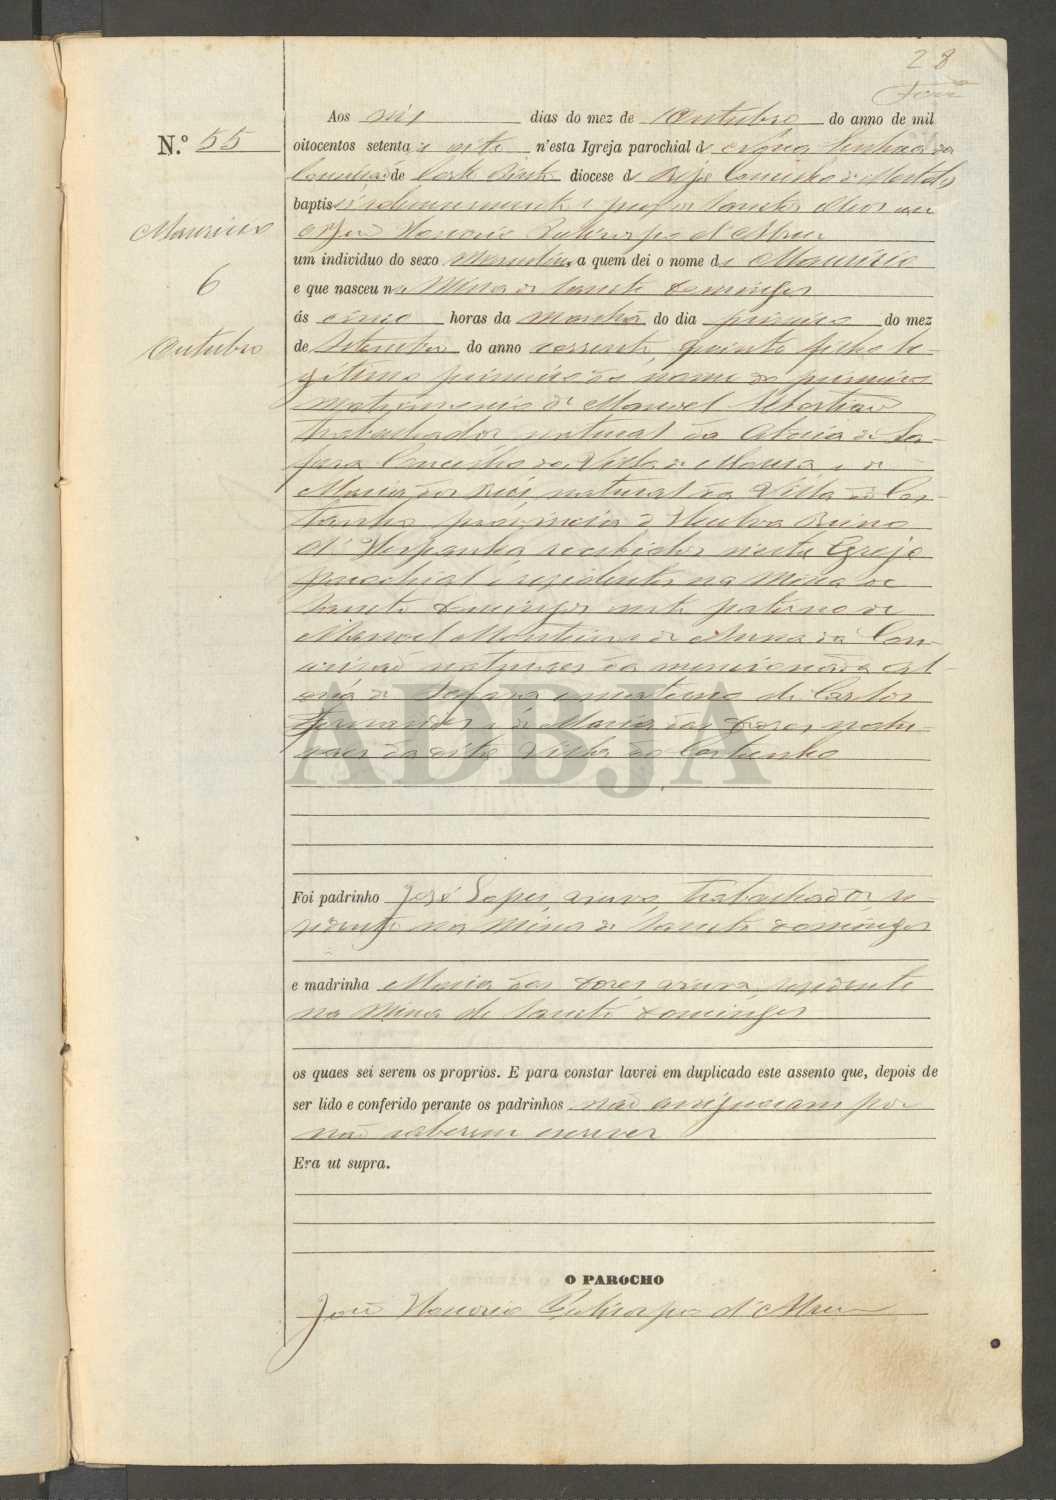 28
N.º 55
Aos seis dias do mez de Outubro do anno de mil
oitocentos setenta e sete n'esta Igreja parochial de Nossa Senhora da
Conceição de Corte Pinto diocese de Beja Concelho de Mertola
baptisei solemnemente e puz os Santos Oleos
João Honorio d'Abreu
um individuo do sexo Masculino a quem dei o nome de Mauricio
e que nasceu na Mina de Sancto Domingos
ás cinco horas da manhã do dia primeiro do mez
de Setembro do anno corrente, quinto filho le-
gitimo primeiro do nome do primeiro
matrimonio de Manoel Sebastião
trabalhador natural da Aldeia de Sa-
fara Concelho da Villa de Moura, e de
Maria dos Reis, natural da Villa do Cas-
tanho provincia d'Huelva Reino
d'Hespanha, recebidos n'esta Egreja
parochial e residentes na Mina de
Sancto Domingos neto paterno de
Manoel Monteiro e de Anna da Con-
ceição naturaes da mencionada al-
deia de Safara e materno de Carlos
Fernandes e de Maria das Dores, natu-
raes da dita Villa do Castanho
Mauricio
6
Outubro
Foi padrinho José Lopes, viuvo, trabalhador, re-
sidente na Mina de Sancto Domingos
e madrinha Maria das Dores viuva, residente
na Mina de Sancto Domingos
os quaes sei serem os proprios. E para constar lavrei em duplicado este assento que, depois de
ser lido e conferido perante os padrinhos não assignaram por
não saberem escrever
Era ut supra.
O PAROCHO
João Honorio d'Abreu
ADBJA